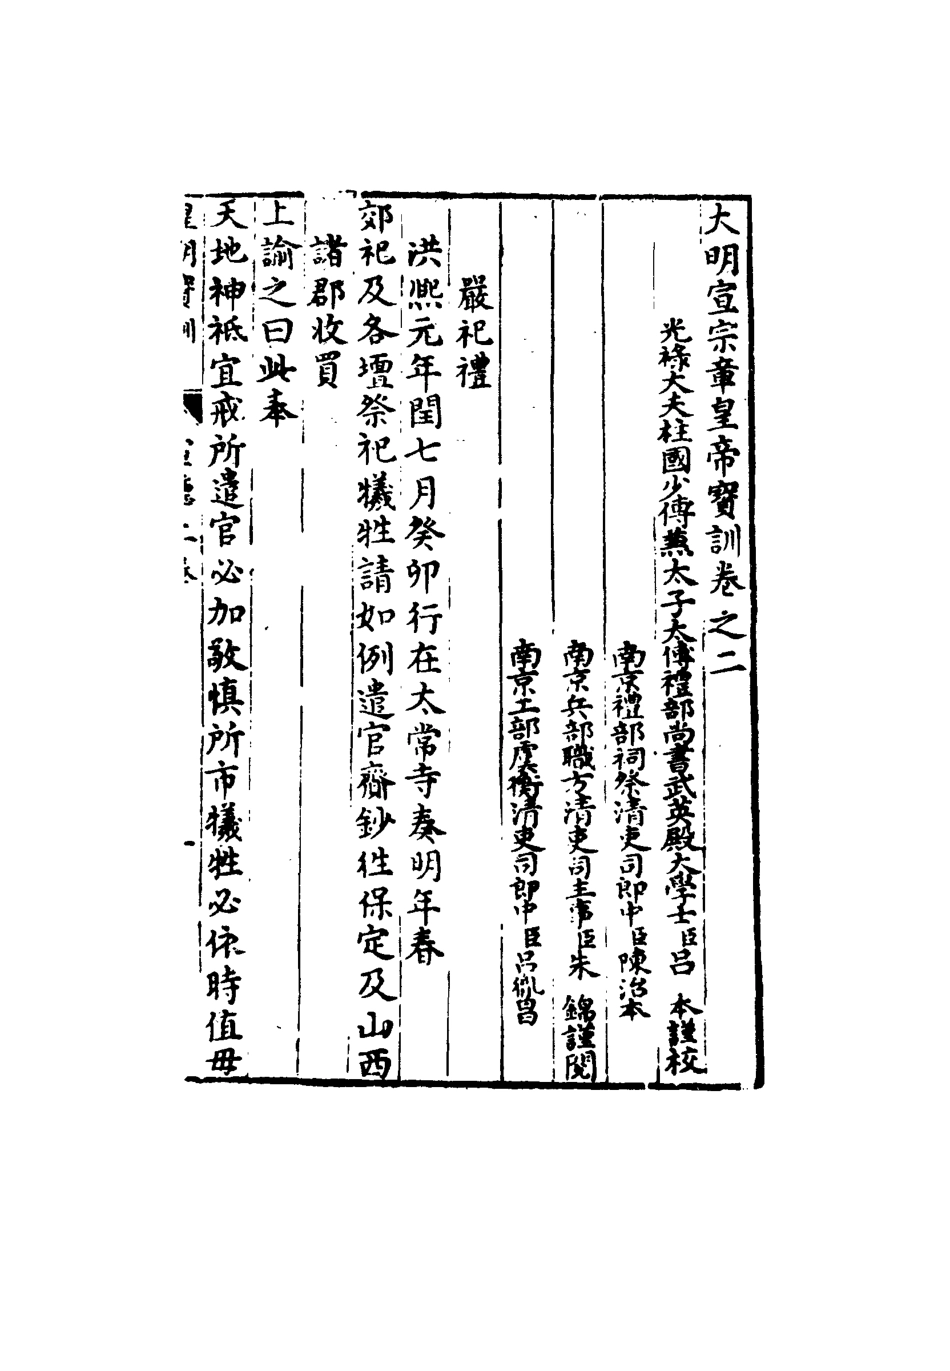 大明宣宗章皇帝寶訓卷之二
光祿大夫柱國少傅兼太子太傅禮部尚書武英殿大學士臣呂 本謹校
南京禮部祠祭清吏司郎中臣陳治本
南京兵部職方清吏司主事臣朱 錦謹閱
南京工部虞衡清吏司郎中臣呂胤昌
嚴祀禮
洪熙元年閏七月癸卯行在太常寺奏明年春
郊祀及各壇祭祀犧牲請如例遣官齎鈔往保定及山西
諸郡收買
上諭之曰此奉
天地神祗宜戒所遣官必加敬慎所市犧牲必依時值毋
皇明寶訓 宣德二卷 一